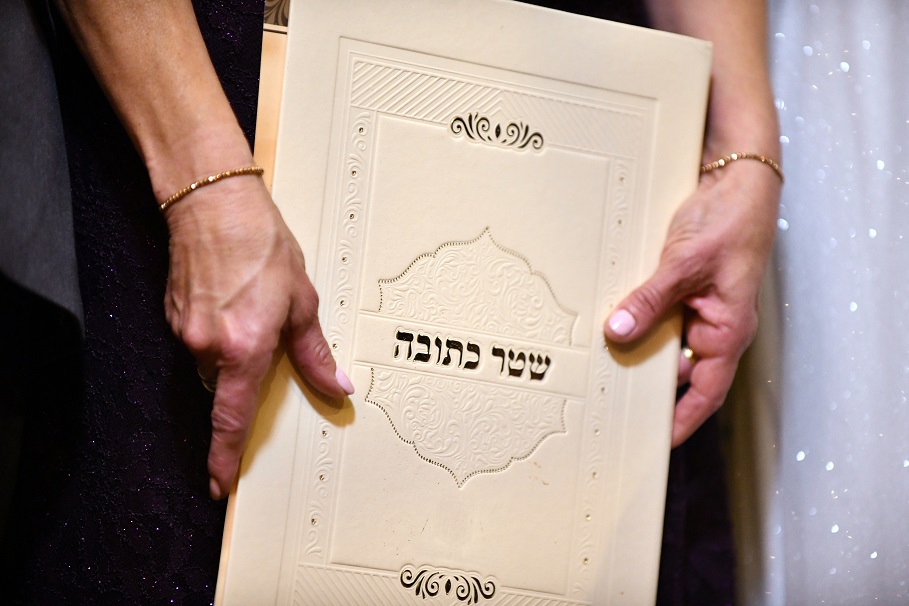 שטר כתובה